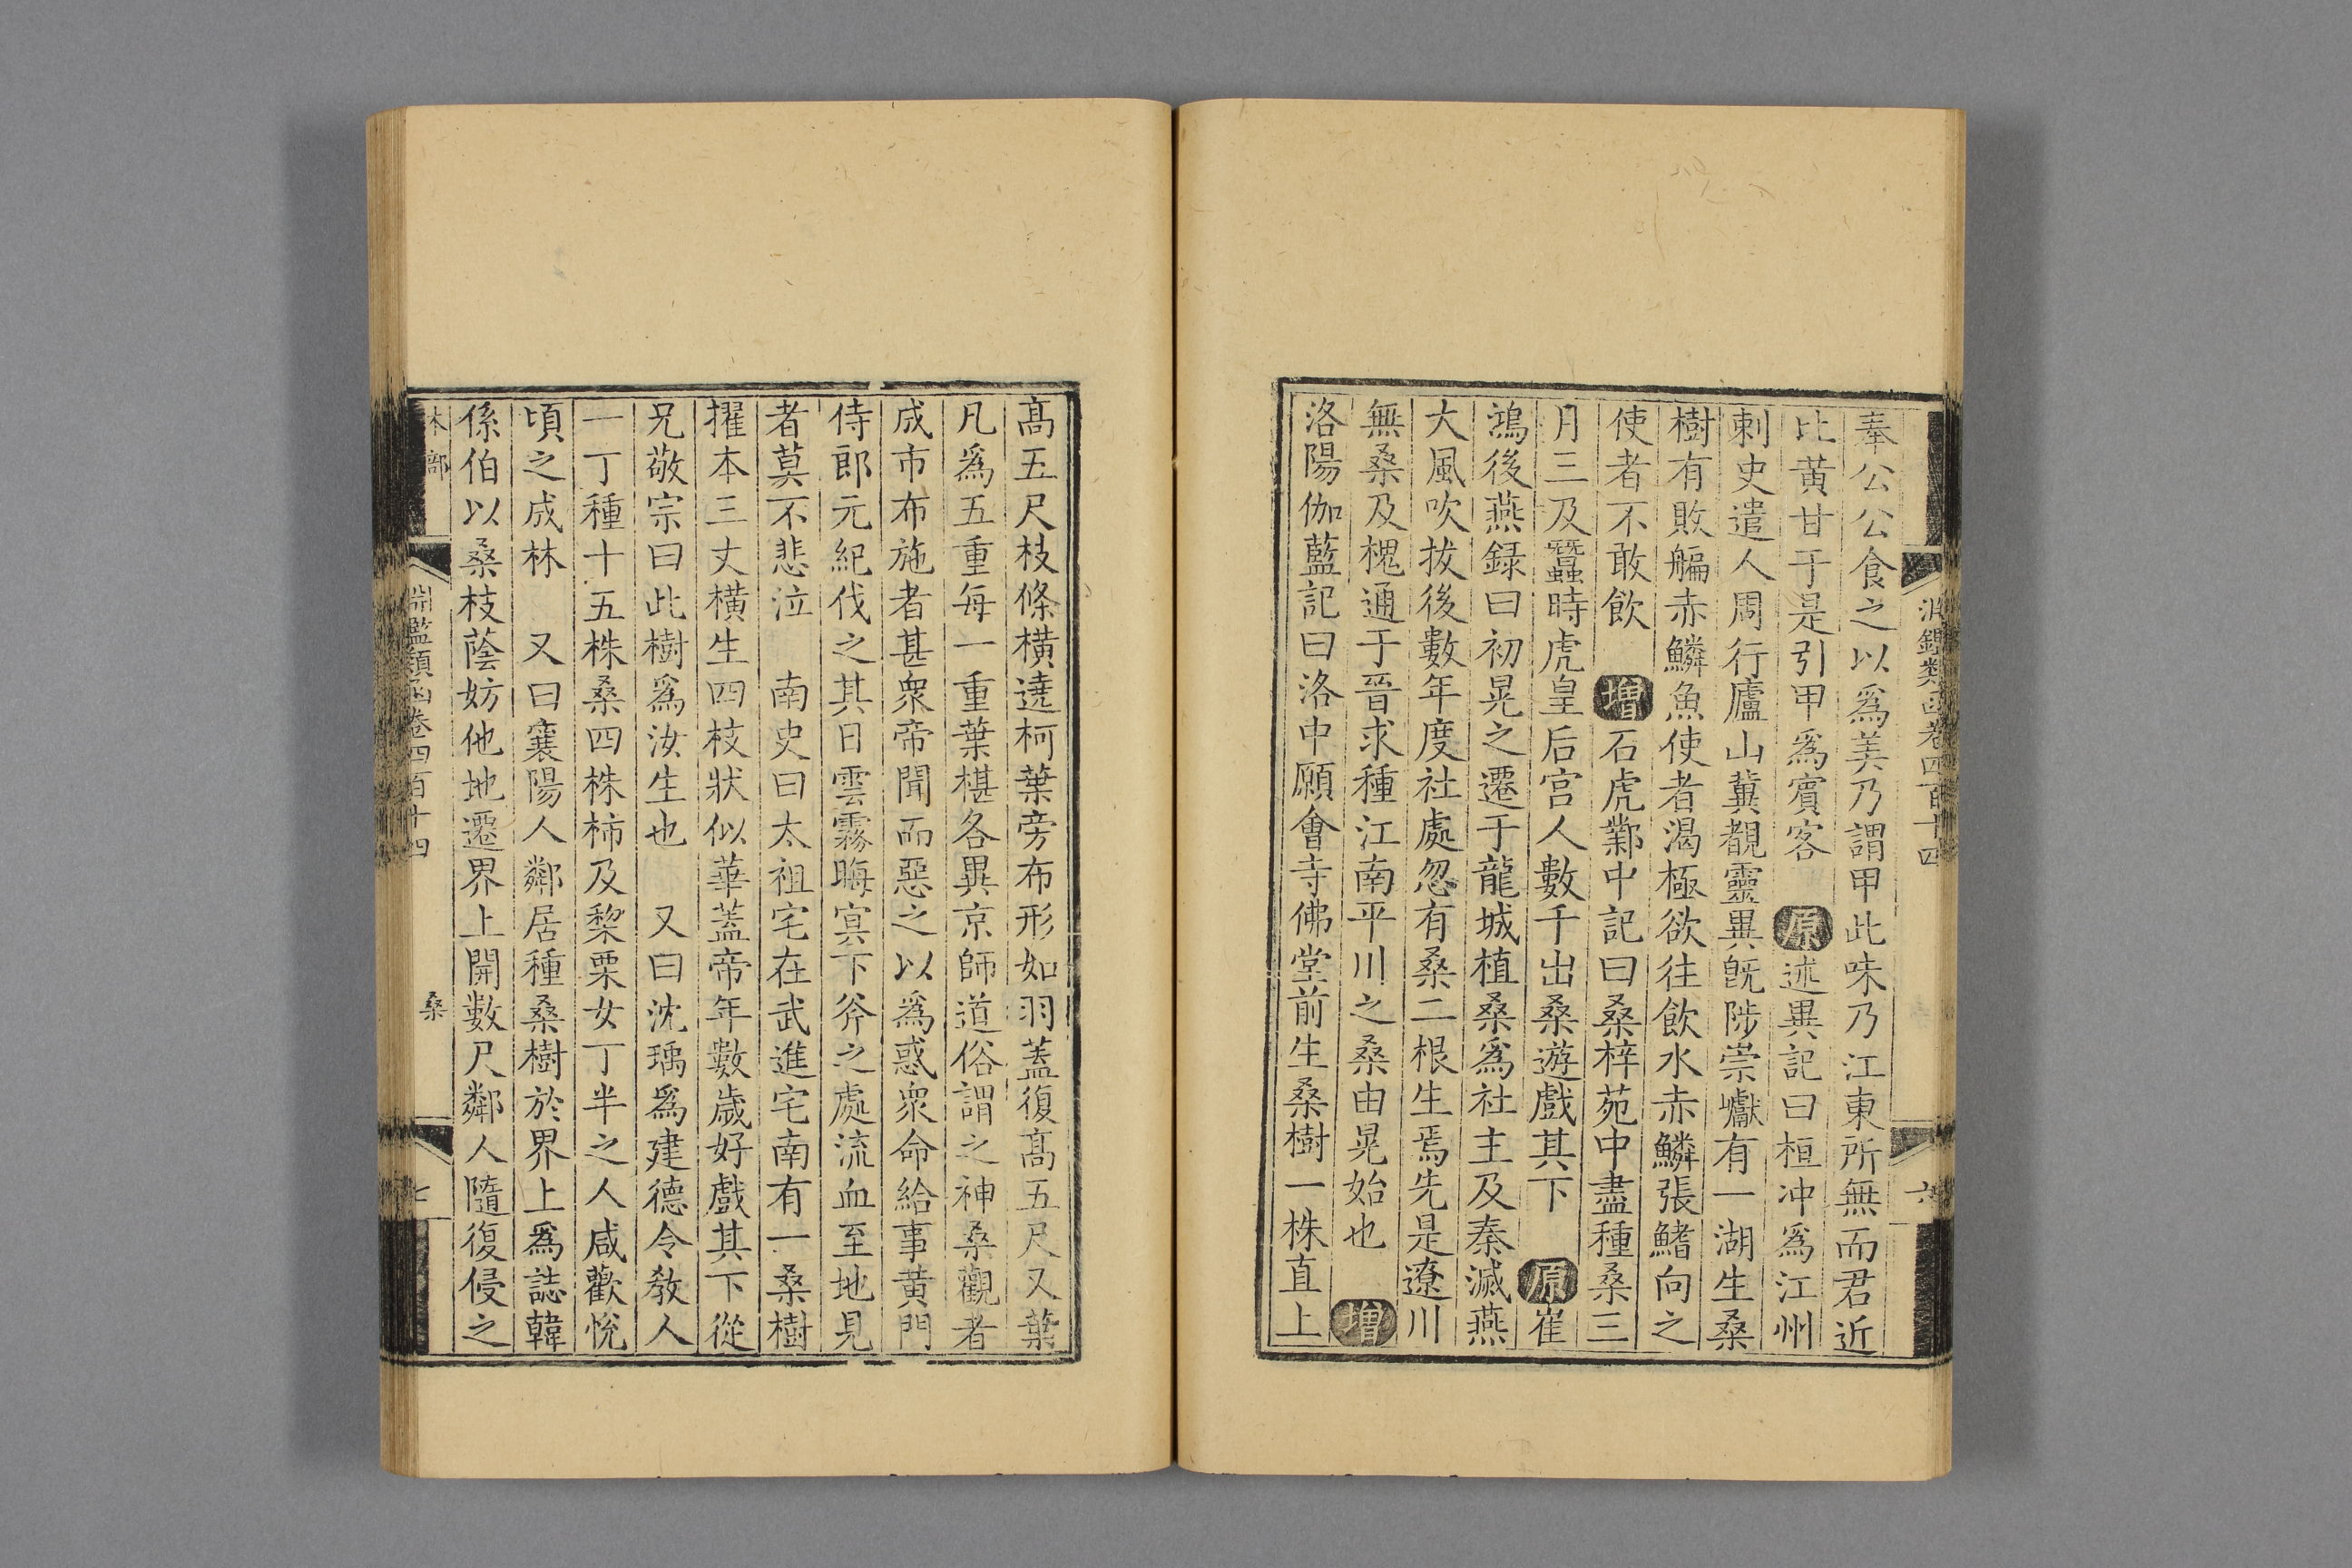 淵鑑類函卷四百十四
六
奉公公食之以爲美乃謂甲此味乃江東所無而君近
比黄甘于是引甲爲賓客 原 述異記曰桓冲爲江州
刺史遣人周行廬山冀覩靈異旣陟崇巘有一湖生桑
樹有敗艑赤鱗魚使者渴極欲往飲水赤鱗張鰭向之
使者不敢飲 增 石虎鄴中記曰桑梓苑中盡種桑三
月三及蠶時虎皇后宫人數千出桑遊戲其下 原 崔
鴻後燕録曰初晃之遷于龍城植桑爲社主及秦滅燕
大風吹拔後數年度社處忽有桑二根生焉先是遼川
無桑及槐通于晉求種江南平川之桑由晃始也 增
洛陽伽藍記曰洛中願會寺佛堂前生桑樹一株直上
髙五尺枝條横遶柯葉旁布形如羽蓋復髙五尺又葉
凡爲五重每一重葉椹各異京師道俗謂之神桑觀者
成市布施者甚衆帝聞而惡之以爲惑衆命給事黄門
侍郎元紀伐之其日雲霧晦冥下斧之處流血至地見
者莫不悲泣 南史曰太祖宅在武進宅南有一桑樹
擢本三丈横生四枝狀似華蓋帝年數歲好戲其下從
兄敬宗曰此樹爲汝生也 又曰沈瑀爲建德令教人
一丁種十五株桑四株柿及棃栗女丁半之人咸歡悅
頃之成林 又曰襄陽人鄰居種桑樹於界上爲誌韓
係伯以桑枝蔭妨他地遷界上開數尺鄰人隨復侵之
木部
淵鑑類函卷四百十四
桑
七